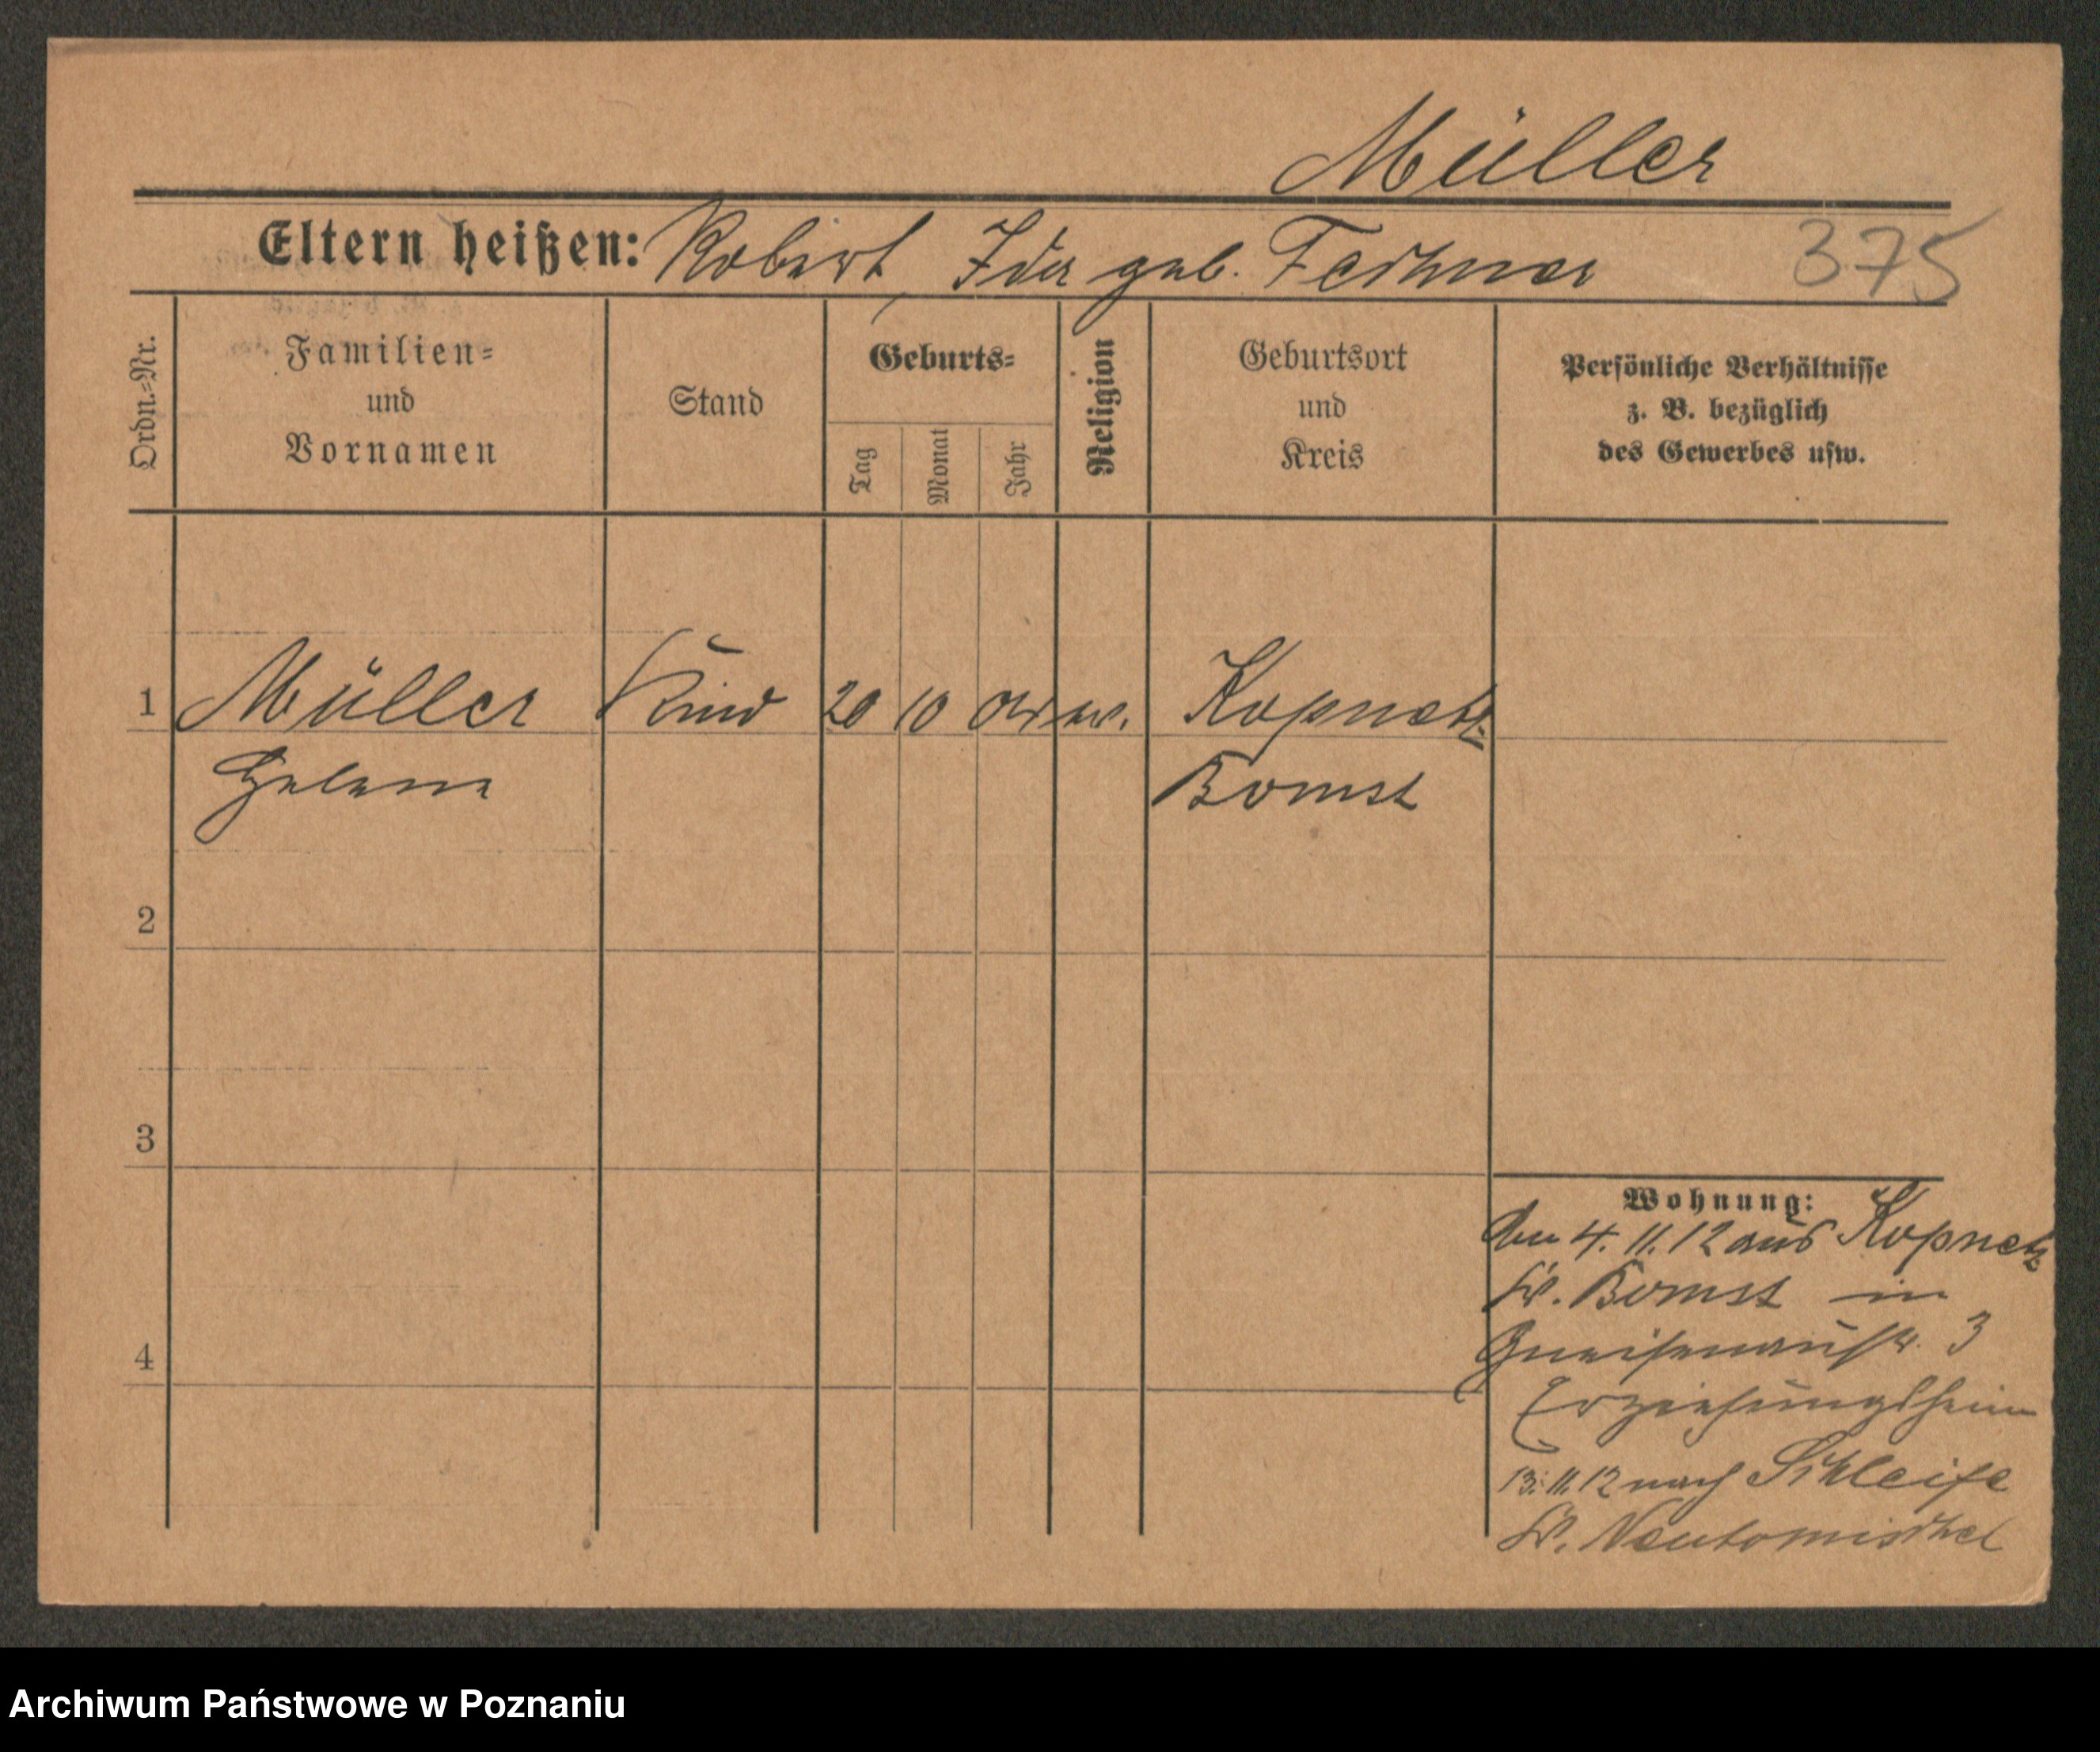 Müller
Eltern heißen: Robert Ida geb. Fechner 375
Ordn.-Nr.
Familien-
und
Vornamen
Stand
Geburts-
Tag
Monat
Jahr
Religion
Geburtsort
und
Kreis
Persönliche Verhältnisse
z. B. bezüglich
des Gewerbes usw.
1 Müller Kind 20 10 ev. Kopnitz
Helene Bomst
2
3
4
Wohnung:
Den 4. 11. 12 aus Kopnitz
Kr. Bomst in
Gneisenaustr. 3
Erziehungsheim
13. 11. 12 nach Schleife
Kr. Neutomischel
Archiwum Państwowe w Poznaniu